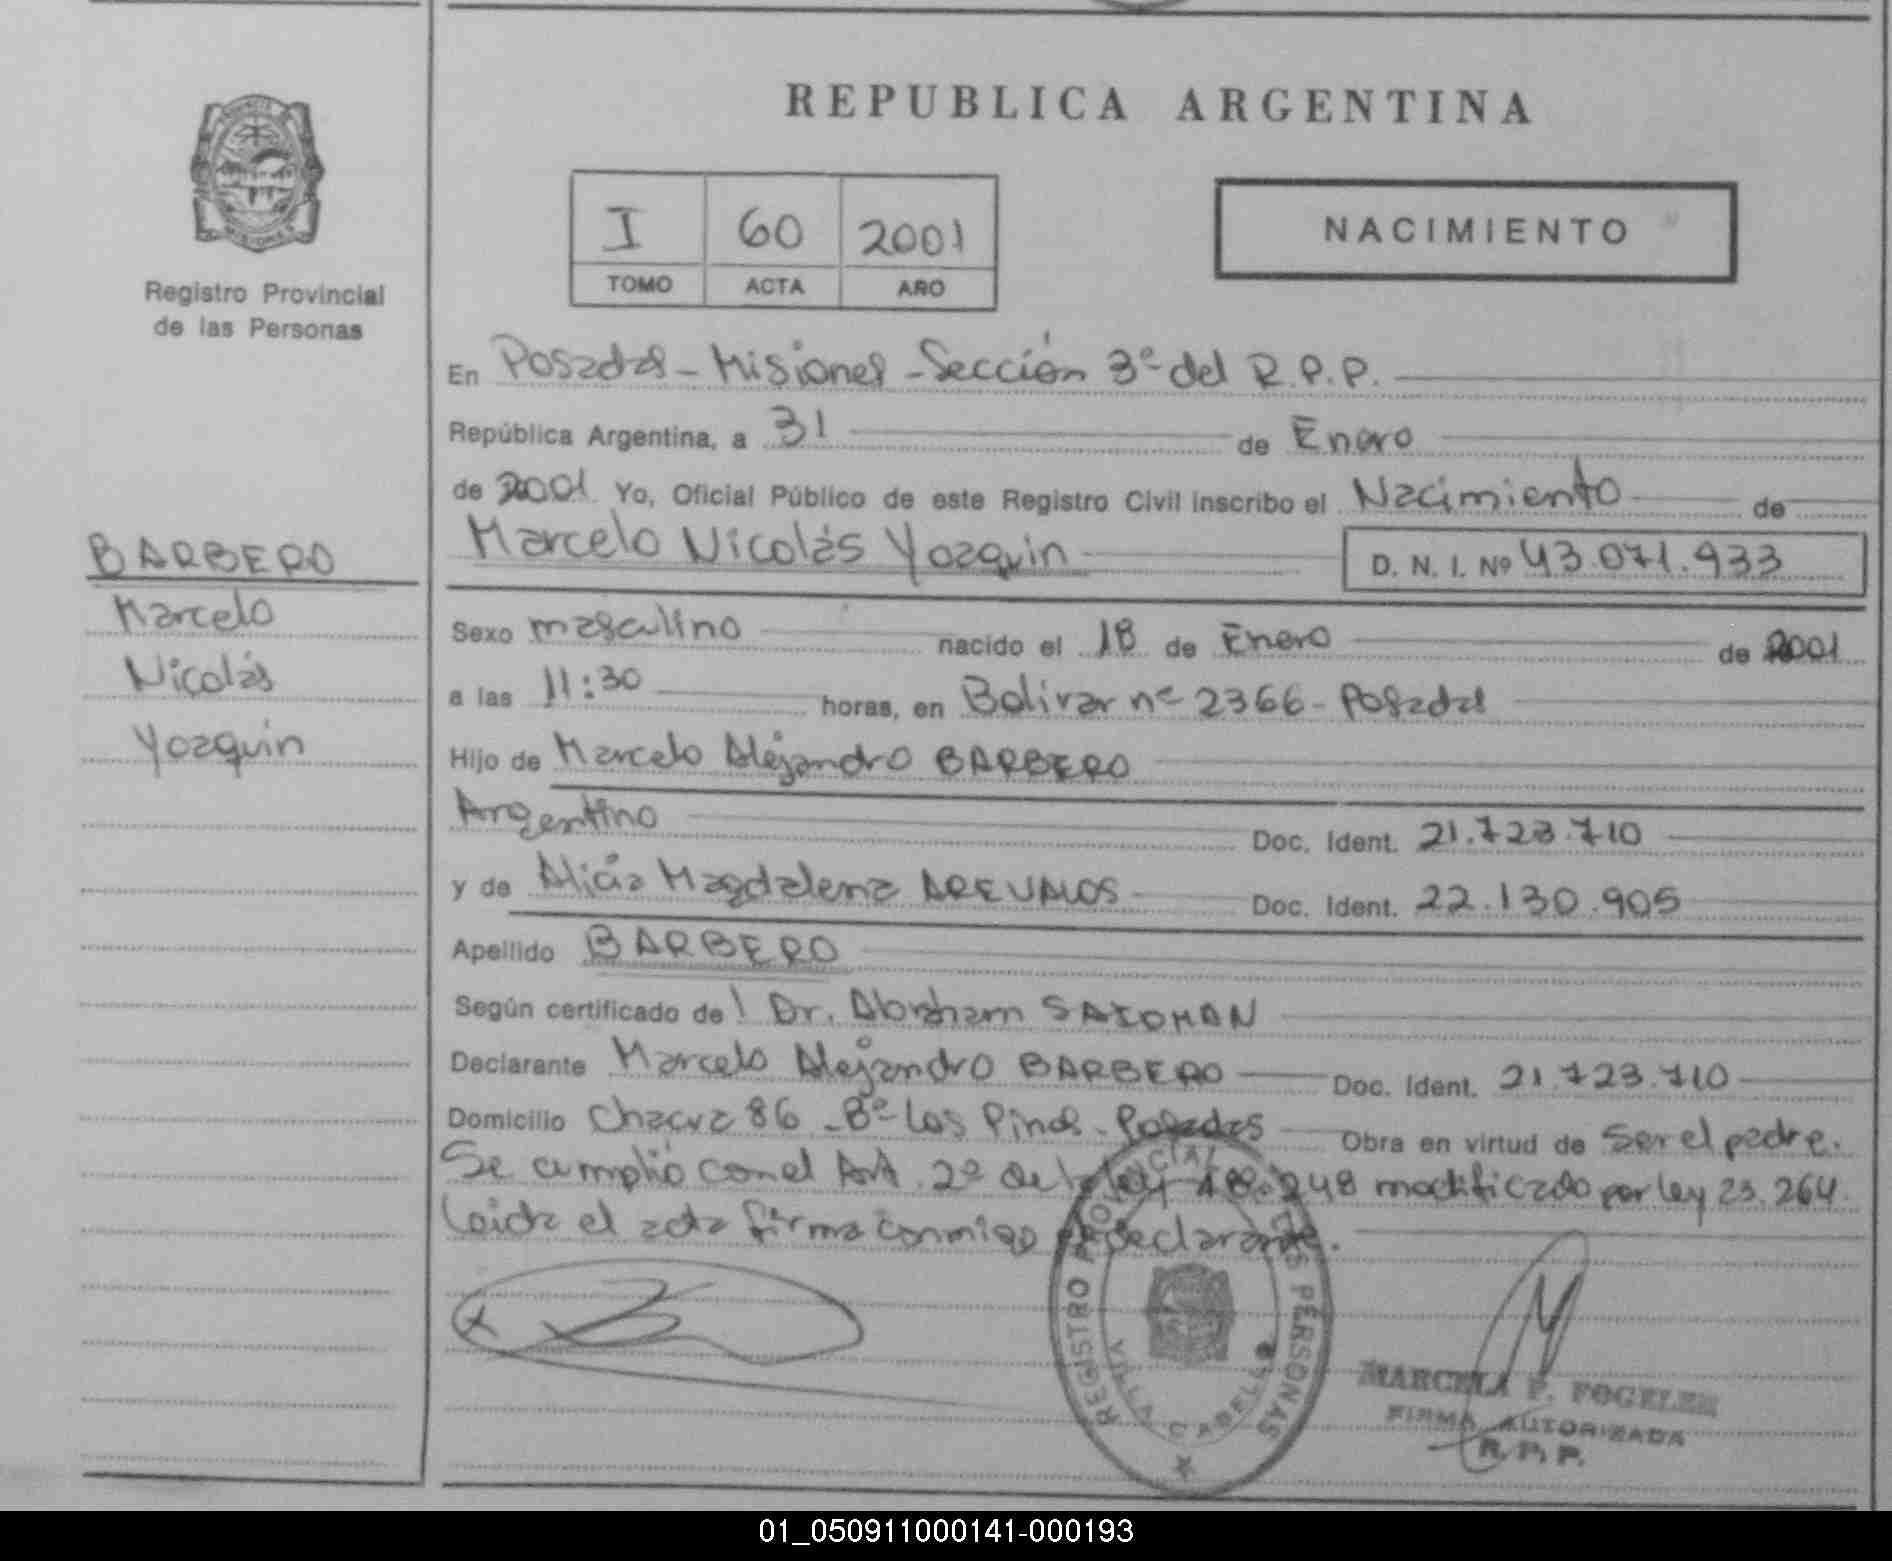 REPUBLICA ARGENTINA
PROVINCIA
MISIONES
Registro Provincial
de las Personas
I 60 2001
TOMO ACTA AÑO
NACIMIENTO
BARBERO
Marcelo
Nicolás
Yoaquin
En Posadas - Misiones - Sección 3ª del R.P.P.
República Argentina, a 31 de Enero
de 2001 Yo, Oficial Público de este Registro Civil inscribo el Nacimiento de
Marcelo Nicolás Yoaquin D. N. I. Nº 43.071.933
Sexo masculino nacido el 18 de Enero de 2001
a las 11:30 horas, en Bolivar nº 2366 - Posadas
Hijo de Marcelo Alejandro BARBERO
Argentino Doc. Ident. 21.723.710
y de Alicia Magdalena AREVALOS Doc. Ident. 22.130.905
Apellido BARBERO
Según certificado de l Dr. Abraham
Declarante Marcelo Alejandro BARBERO Doc. Ident. 21.723.710
Domicilio Chacra 86 - Bº Los Pinos - Posadas Obra en virtud de ser el padre.
Se cumplió con el Art. 2º de la ley 18.248 modificado por ley 23.264.
Leida el acta firma conmigo el declarante.
REGISTRO PROVINCIAL DE LAS PERSONAS
VILLA CABELLO
MARCELA F. FOGELER
FIRMA AUTORIZADA
R. P. P.
01_050911000141-000193